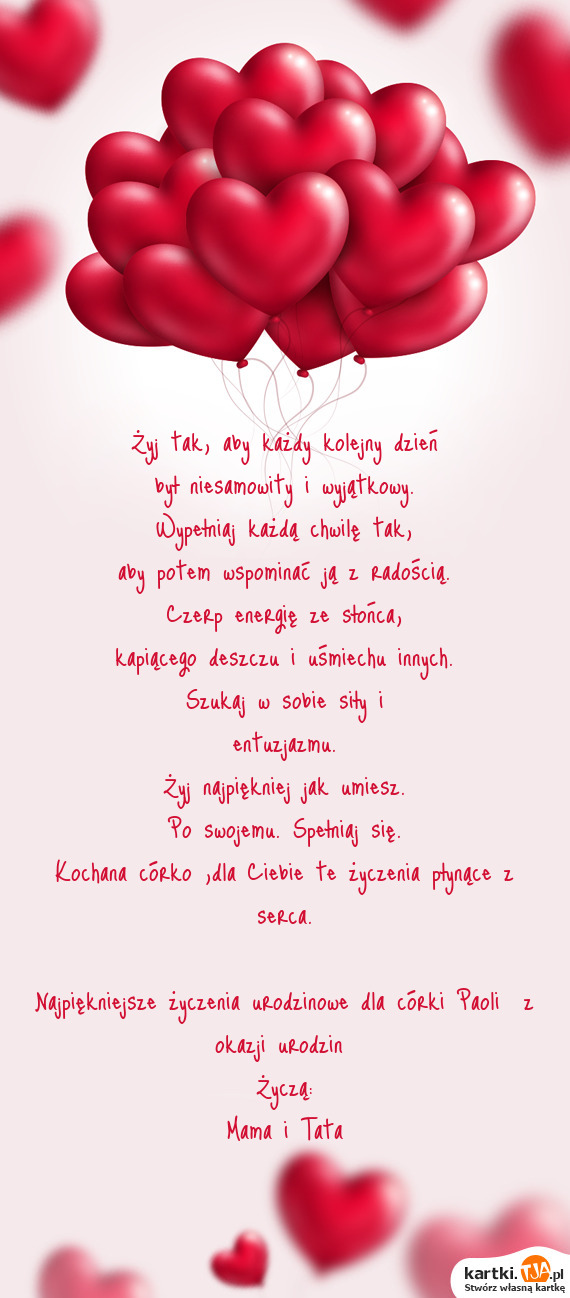 Żyj tak, aby każdy kolejny dzień
był niesamowity i wyjątkowy.
Wypełniaj każdą chwilę tak,
aby potem wspominać ją z radością.
Czerp energię ze słońca,
kapiącego deszczu i uśmiechu innych.
Szukaj w sobie siły i
entuzjazmu.
Żyj najpiękniej jak umiesz.
Po swojemu. Spełniaj się.
Kochana córko ,dla Ciebie te życzenia płynące z
serca.
Najpiękniejsze życzenia urodzinowe dla córki Paoli z
okazji urodzin
Życzą:
Mama i Tata
kartki.TJA.pl
Stwórz własną kartkę